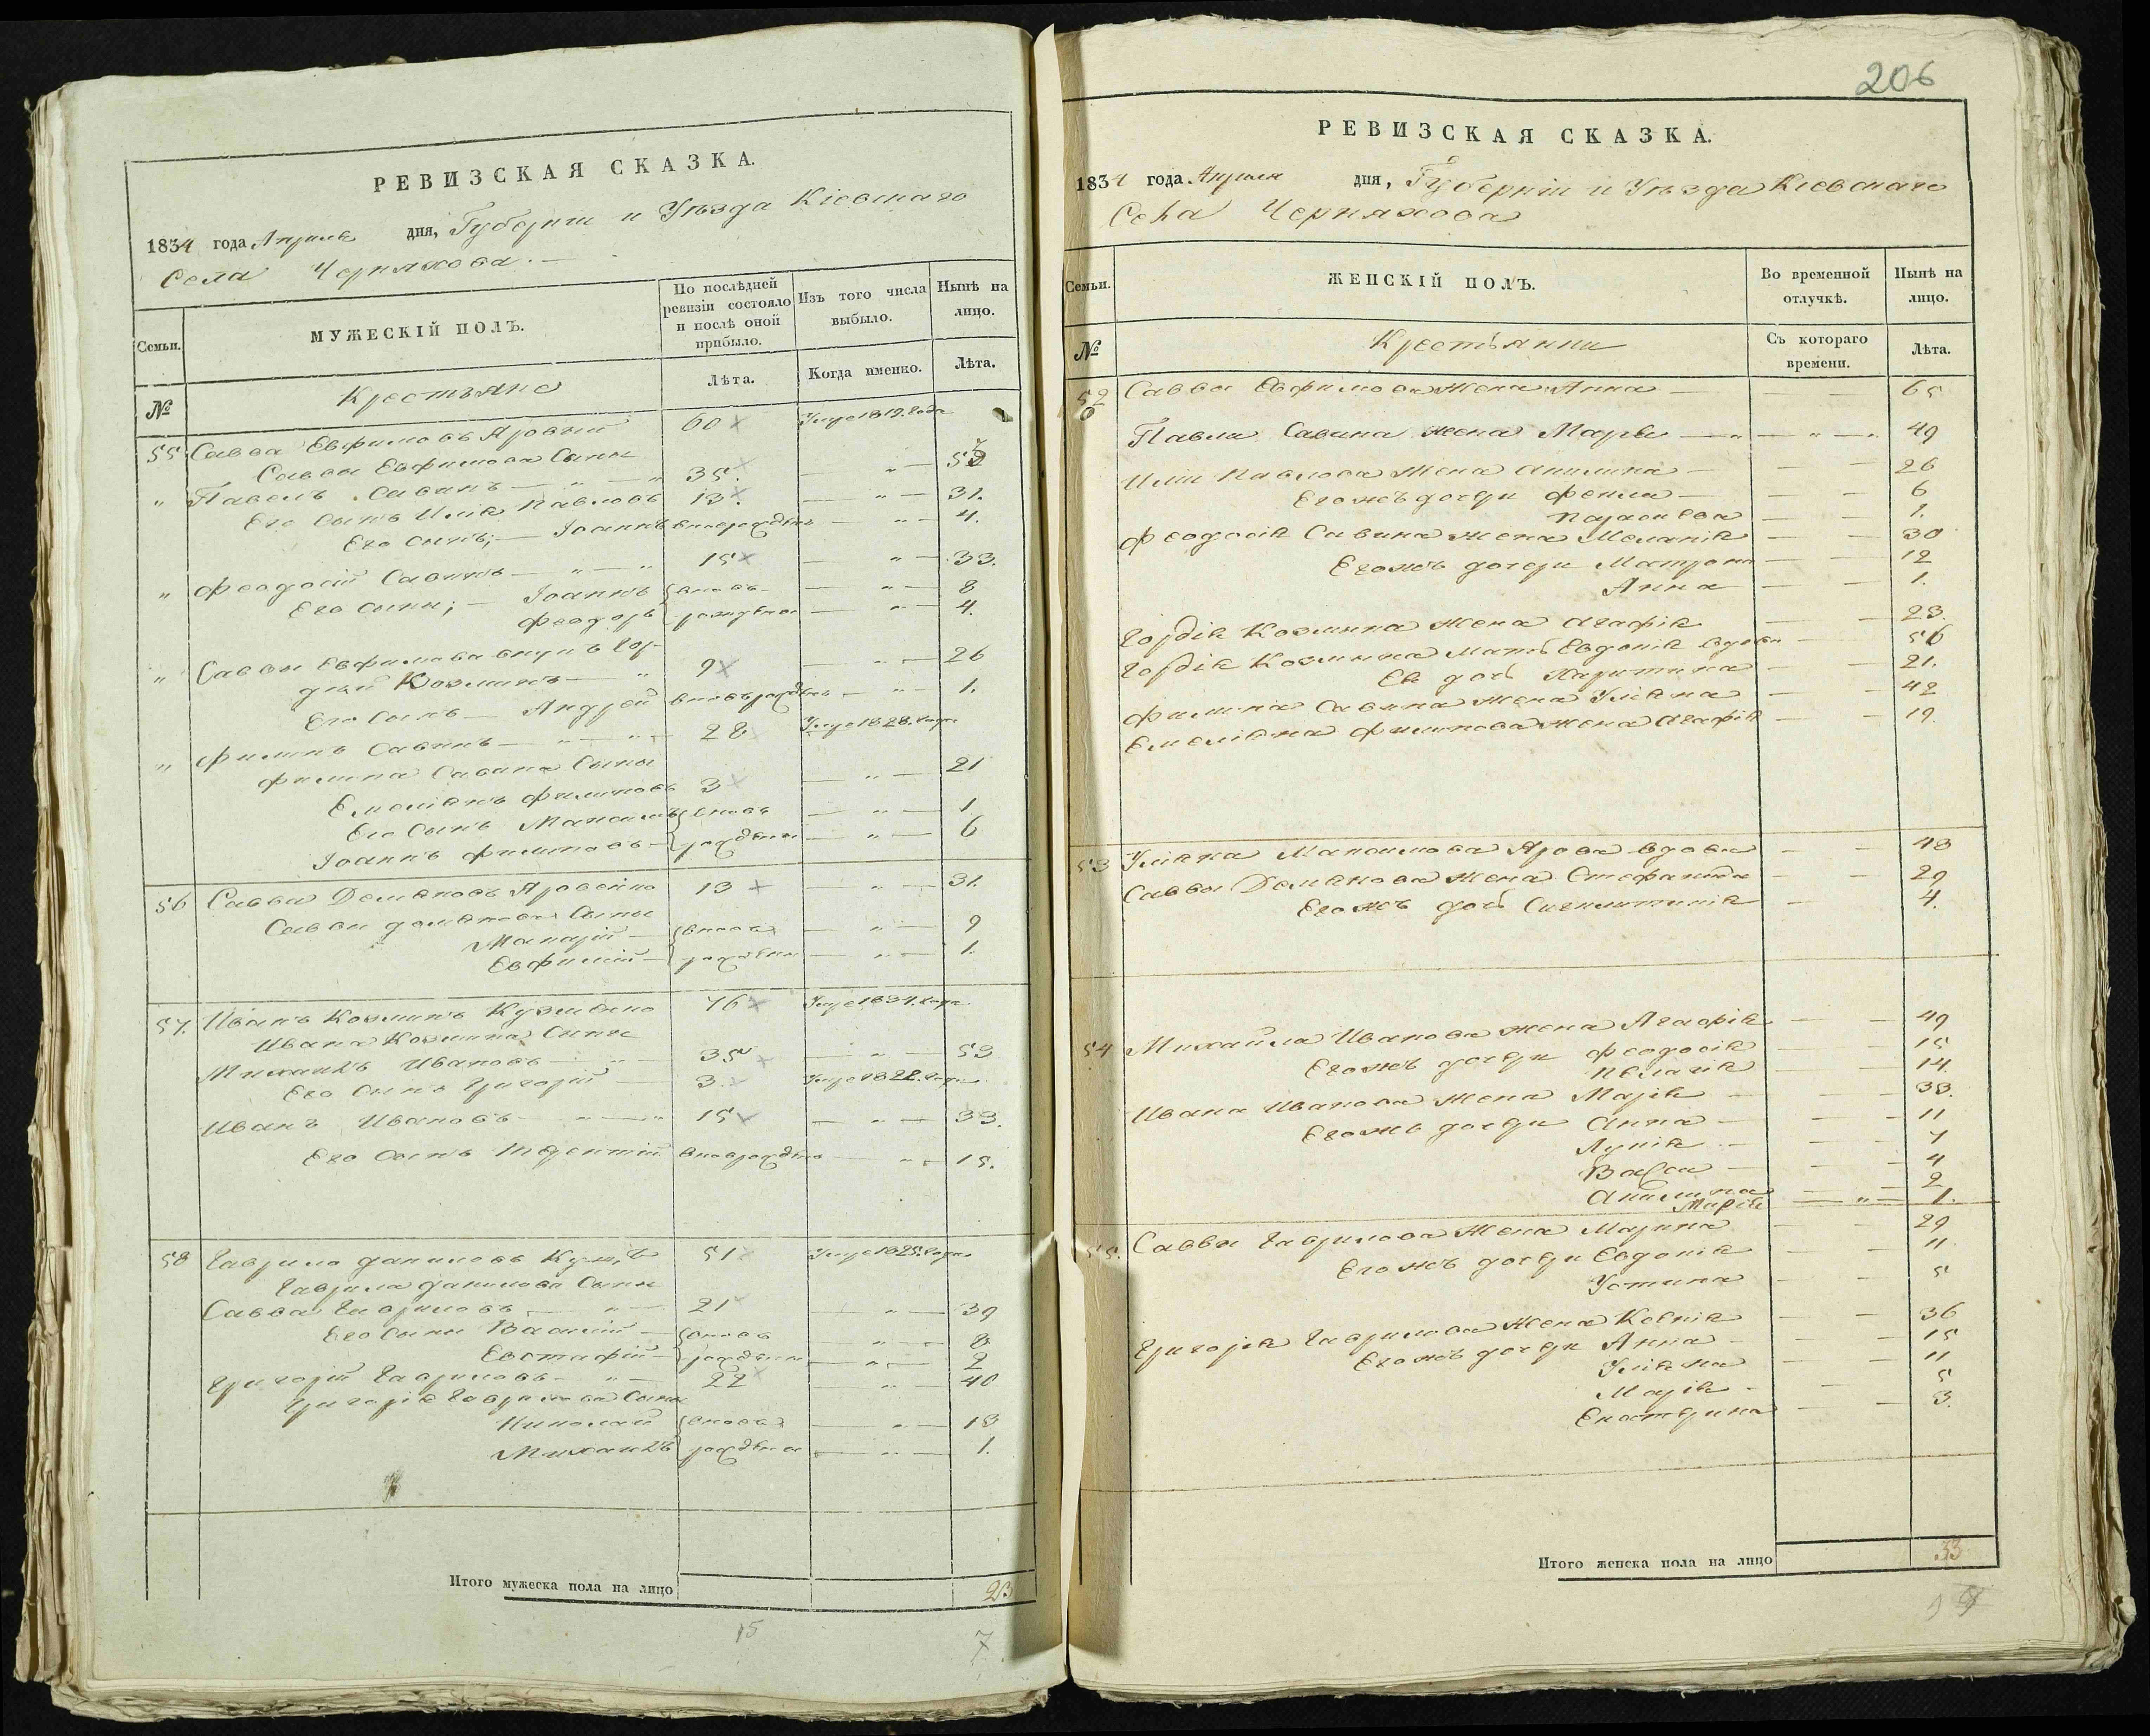 РЕВИЗСКАЯ СКАЗКА.
1834 года Апреля дня, Губерніи и Уѣзда Кіевскаго
Села Черняхова. —
Семьи. МУЖЕСКІЙ ПОЛЪ. По послѣдней ревизіи состояло и послѣ оной прибыло. Изъ того числа выбыло. Нынѣ на лицо.
№ Крестьяне Лѣта. Когда именно. Лѣта.
55 Савва Евфимовъ Яровый 60 Умре 1819. года
Саввы Евфимова Сыны
" Павелъ Савинъ — " — " 35. — " — 53
Его Сынъ Илія Павловъ 13. — " — 31.
Его сынъ; — Іоаннъ вновьрожденъ — " — 4.
" Феодосій Савинъ — " — " 15 — " — 33.
Его сыны; — Іоаннъ вновь — " — 8
Феодоръ рожденны — " — 4.
" Саввы Евфимова внукъ Гор-
дій Козминъ — " 9 — " — 26
Его Сынъ — Андрей вновьрожденъ — " — 1.
" Филипъ Савинъ — " — " 28 Умре 1828. года
Филипа Савина Сыны
Емеліянъ Филиповъ 3 — " — 21
Его Сынъ Максимъ вновь — " — 1
Іоаннъ Филиповъ — рожденны — " — 6
56 Савва Демяновъ Яровенко 13 — " — 31.
Саввы демянова Сыны
Макарій — вновь — " — 9
Евфимій — рожденны — " — 1.
57. Иванъ Козминъ Кузменко 76 Умре 1831. года
Ивана Козмина Сыны
Михаилъ Ивановъ — " — 35 — " — 53
Его Сынъ Григорій 3. Умре 1822. года
Иванъ Ивановъ — " — " 15 — " — 33.
Его Сынъ Терентій вновьрожденъ — " — 15.
58 Гаврило даниловъ 51 Умре 1825. года
Гаврила данилова Сыны
Савва Гавриловъ — " — 21 — " — 39
Его Сыны Василій — вновь — " — 8
Евстафій — рожденны — " — 2
Григорій Гавриловъ — " — 22 — " — 40
Григорія Гаврилова Сыны
Николай вновь — " — 13
Михаилъ рожденны — " — 1.
Итого мужеска пола на лицо 23
15 7
206
РЕВИЗСКАЯ СКАЗКА.
1834 года Апреля дня, Губерніи и Уѣзда Кіевскаго
Села Черняхова
Семьи. ЖЕНСКІЙ ПОЛЪ. Во временной отлучкѣ. Нынѣ на лицо.
№ Крестьянки Съ котораго времени. Лѣта.
52 Саввы Евфимова Жена Анна — — — 65
Павла Савина жена Марья — " — " — 49
Иліи Павлова Жена Акилина — — — 26
Егожъ дочери Фекла — — — 6
Параскева — — 1.
Феодосія Савина жена Меланія — — 30
Егожъ дочери Матрона — — 12
Анна — — 1.
Гордія Козмина жена Агафія — — 23.
Гордія Козмина мать Евдокія вдова — 56
Ея дочь Харитина — — 21.
Филипа Савина жена Уліяна — — 42
Емеліяна Филипова Жена Агафія — — 19.
53 Уліяна Максимова Ярова вдова — — 48
Саввы Демянова Жена Стефанида — — 29
Егожъ дочь — 4.
54 Михайла Иванова жена Агафія — — 49
Егожъ дочери Феодосія — — 15
Пелагія — — 14.
Ивана Иванова Жена Марія — — — 33.
Егожъ дочери Анна — — — 11
— — 7
— — 4
Акилина — — 2
Марія — " — 1.
55. Саввы Гаврилова Жена Марина — — 29
Егожъ дочери Евдокія — — 11
Устина — — 5
Григорія Гаврилова Жена Ксенія — — 36
Егожъ дочери Анна — — — 15
Уліяна — — 11
Марія — — 5
Екатерина — — 3.
Итого женска пола на лицо 33